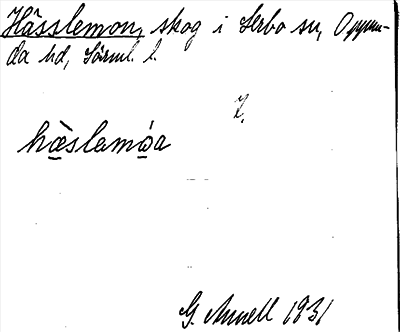 Hässlemon, skog i Lerbo sn, Oppun-
da hd, Sörml. l.
Z.
hæ̀slemóa
G. Annell 1931